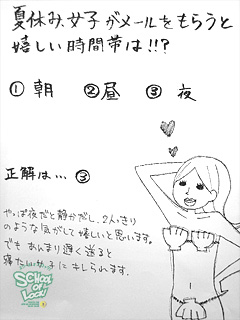 夏休み、女子がメールをもらうと
嬉しい時間帯は!!?
① 朝 ② 昼 ③ 夜
正解は… ③
やっぱ夜だと静かだし、2人っきり
のような気がして嬉しいと思います。
でも あんまり遅く送ると
寝たい女子にキレられます。
SCHOOL
OF
LOCK!